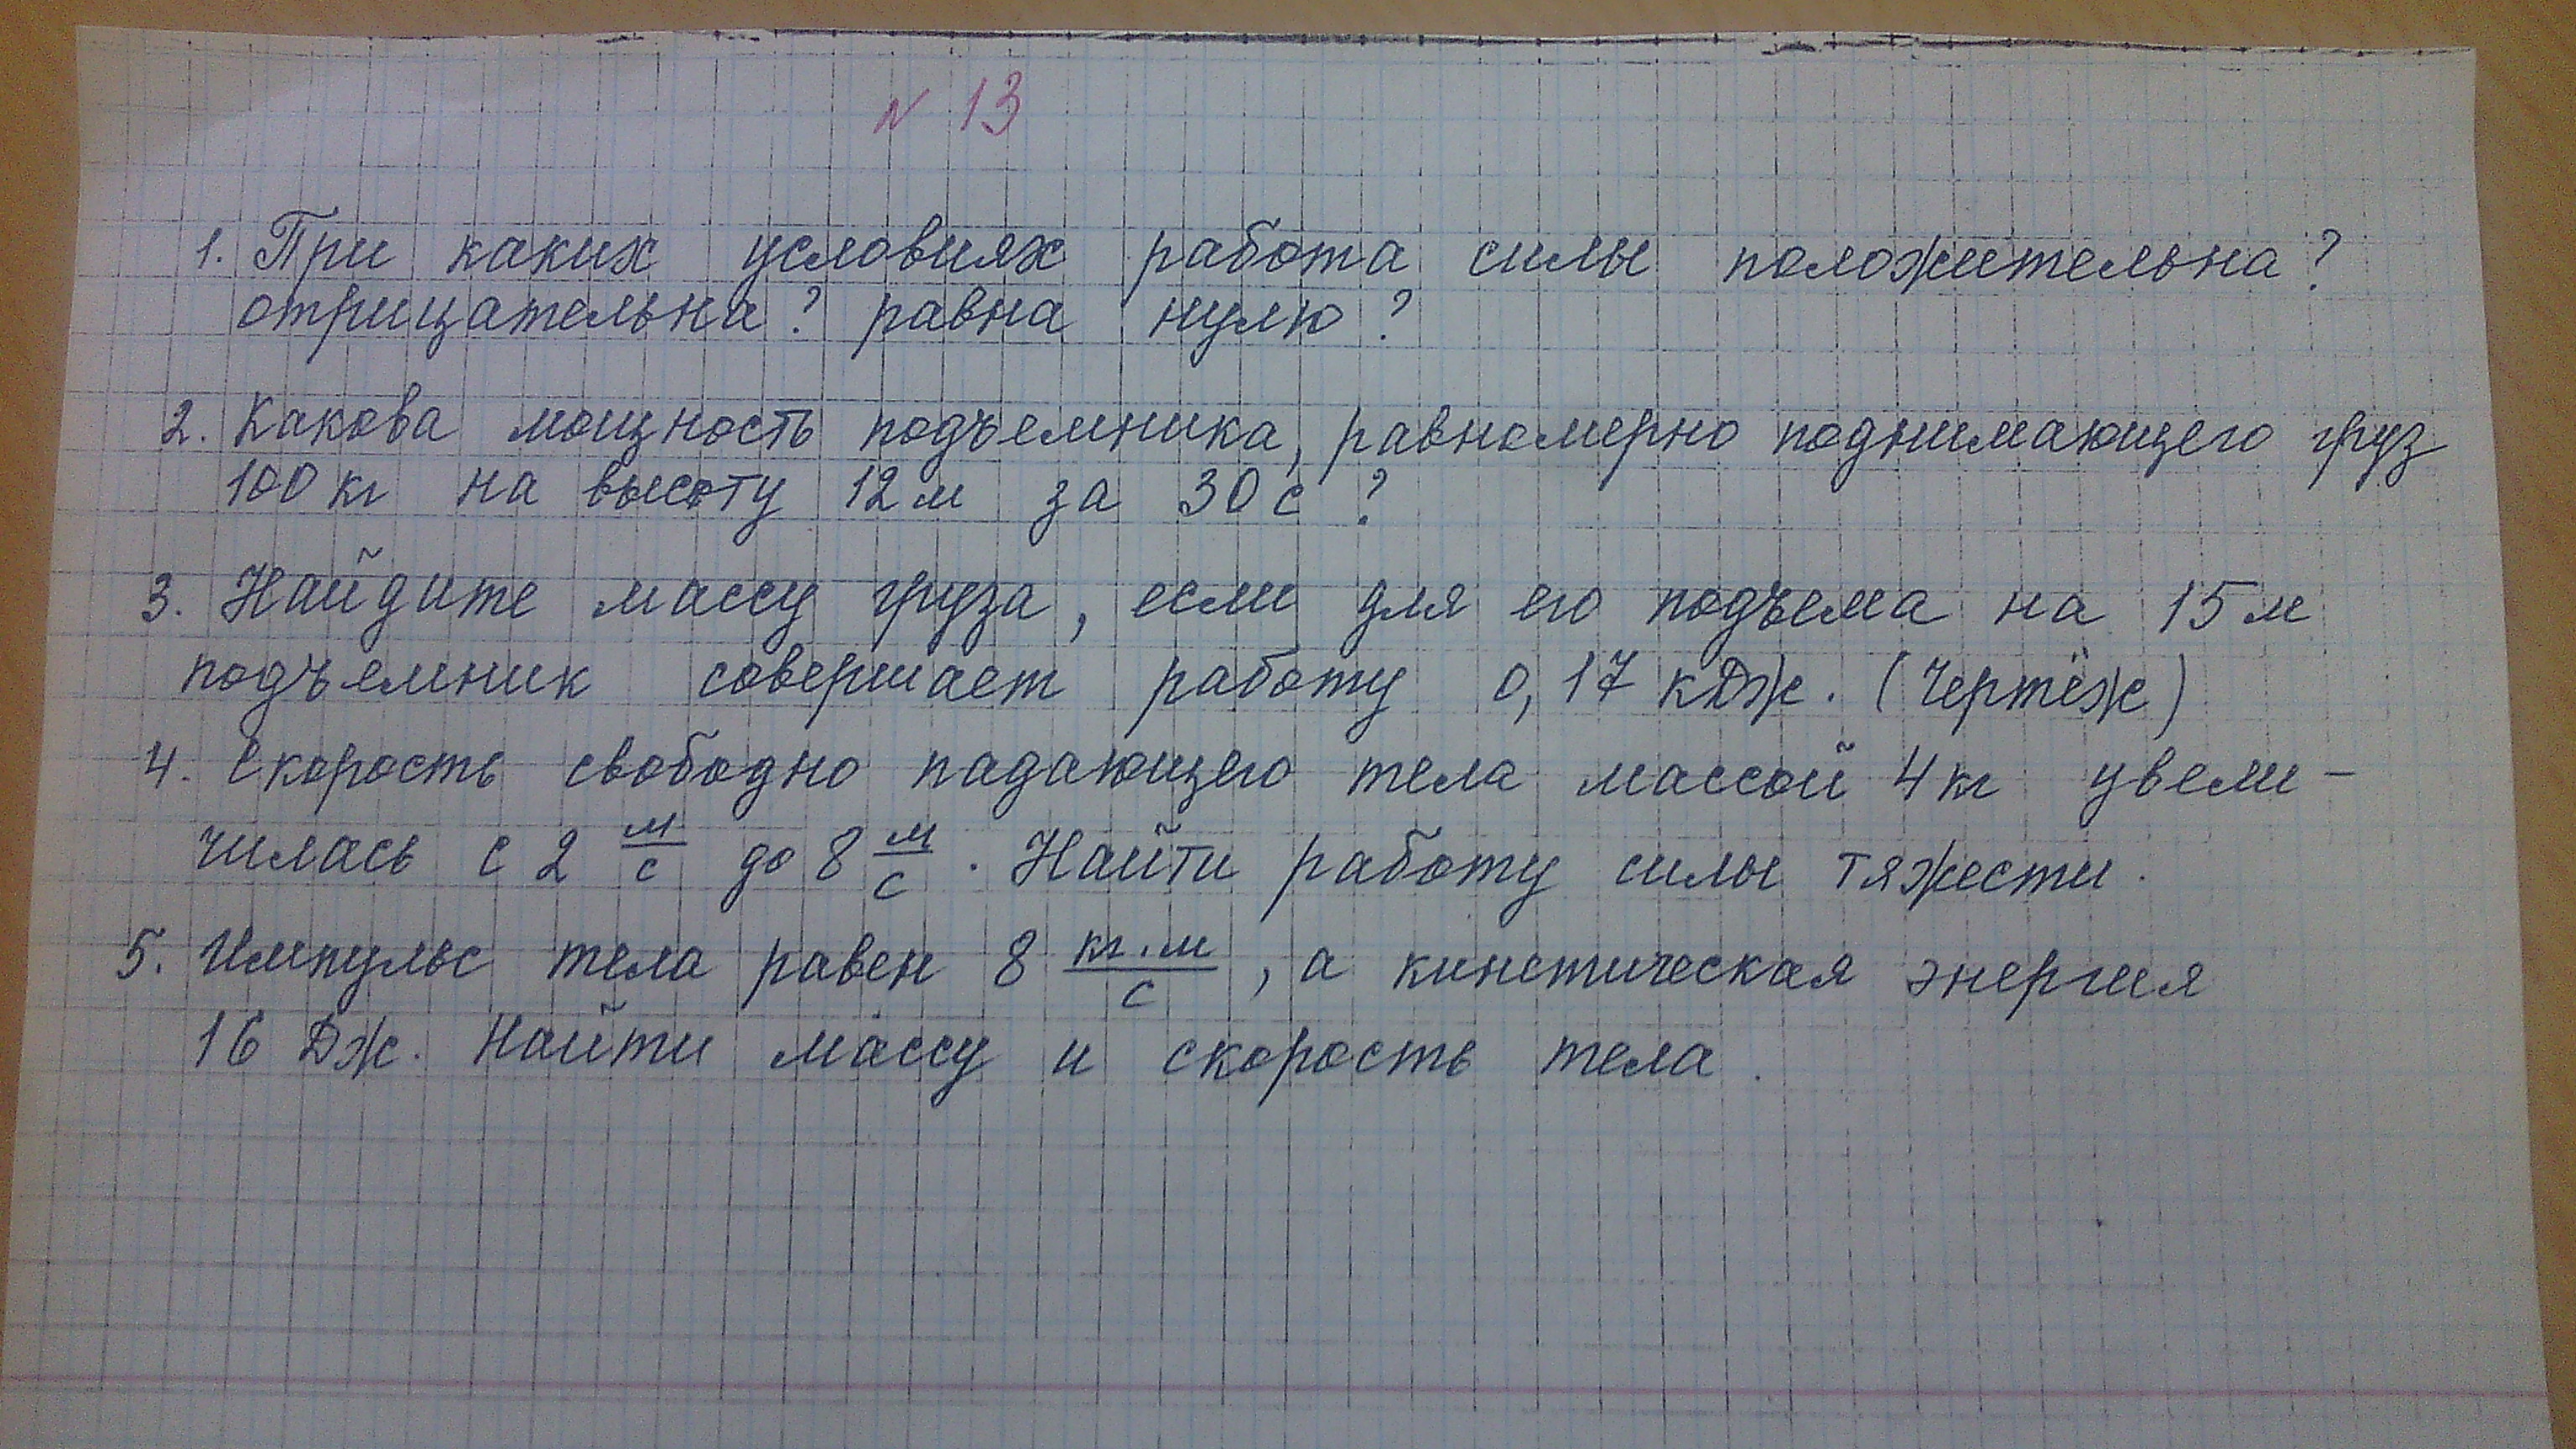 N 13
1. При каких условиях работа силы положительна?
отрицательна? равна нулю?
2. Какова мощность подъемника, равномерно поднимающего груз
100 кг на высоту 12 м за 30 с?
3. Найдите массу груза, если для его подъема на 15 м
подъемник совершает работу 0,17 кДж. (Чертёж)
4. Скорость свободно падающего тела массой 4 кг увели-
чилась с 2 м/с до 8 м/с. Найти работу силы тяжести.
5. Импульс тела равен 8 кг·м/с, а кинетическая энергия
16 Дж. Найти массу и скорость тела.